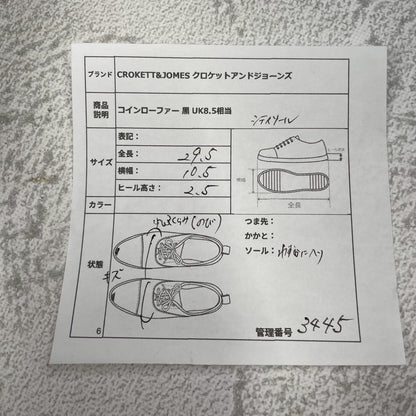 ブランド CROKETT&JOMES クロケットアンドジョーンズ
商品説明 コインローファー 黒 UK8.5相当
シティソール
サイズ
表記：
全長： 29.5
横幅： 10.5
ヒール高さ： 2.5
ヒール高さ
横幅
全長
カラー
状態
キズ
(のび)
つま先：
かかと：
ソール： わずかにヘリ
6
管理番号 3445